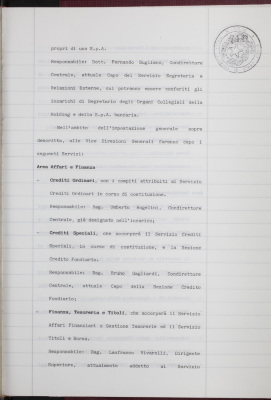 propri di una S.p.A.
Responsabile: Dott. Fernando Gagliano, Condirettore
Centrale, attuale Capo del Servizio Segreteria e
Relazioni Esterne, cui potranno essere conferiti gli
incarichi di Segretario degli Organi Collegiali della
Holding e della S.p.A. bancaria.
Nell'ambito dell'impostazione generale sopra
descritta, alle Vice Direzioni Generali faranno capo i
seguenti Servizi:
Area Affari e Finanza
- Crediti Ordinari, con i compiti attribuiti al Servizio
Crediti Ordinari in corso di costituzione.
Responsabile: Rag. Umberto Angelini, Condirettore
Centrale, già designato nell'incarico;
- Crediti Speciali, che accorperà il Servizio Crediti
Speciali, in corso di costituzione, e la Sezione
Credito Fondiario.
Responsabile: Rag. Bruno Gagliardi, Condirettore
Centrale, attuale Capo della Sezione Credito
Fondiario;
- Finanza, Tesoreria e Titoli, che accorperà il Servizio
Affari Finanziari e Gestione Tesoreria ed il Servizio
Titoli e Borsa.
Responsabile: Rag. Lanfranco Vivarelli, Dirigente
Superiore, attualmente addetto al Servizio